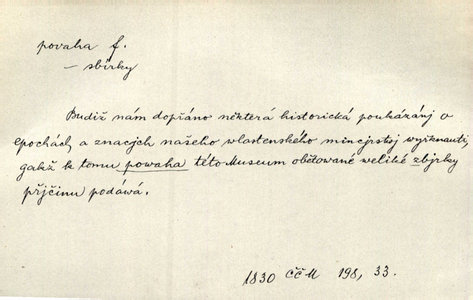 povaha f.
– sbírky
Budiž nám dopřáno některá historická pouházánj o
epochách a znacjch našeho wlastenského mincjrstwj wyřknauti,
gakž k tomu powaha této Museum obětované weliké zbjrky
přjčinu podáwá.
1830 ČČM 198, 33.